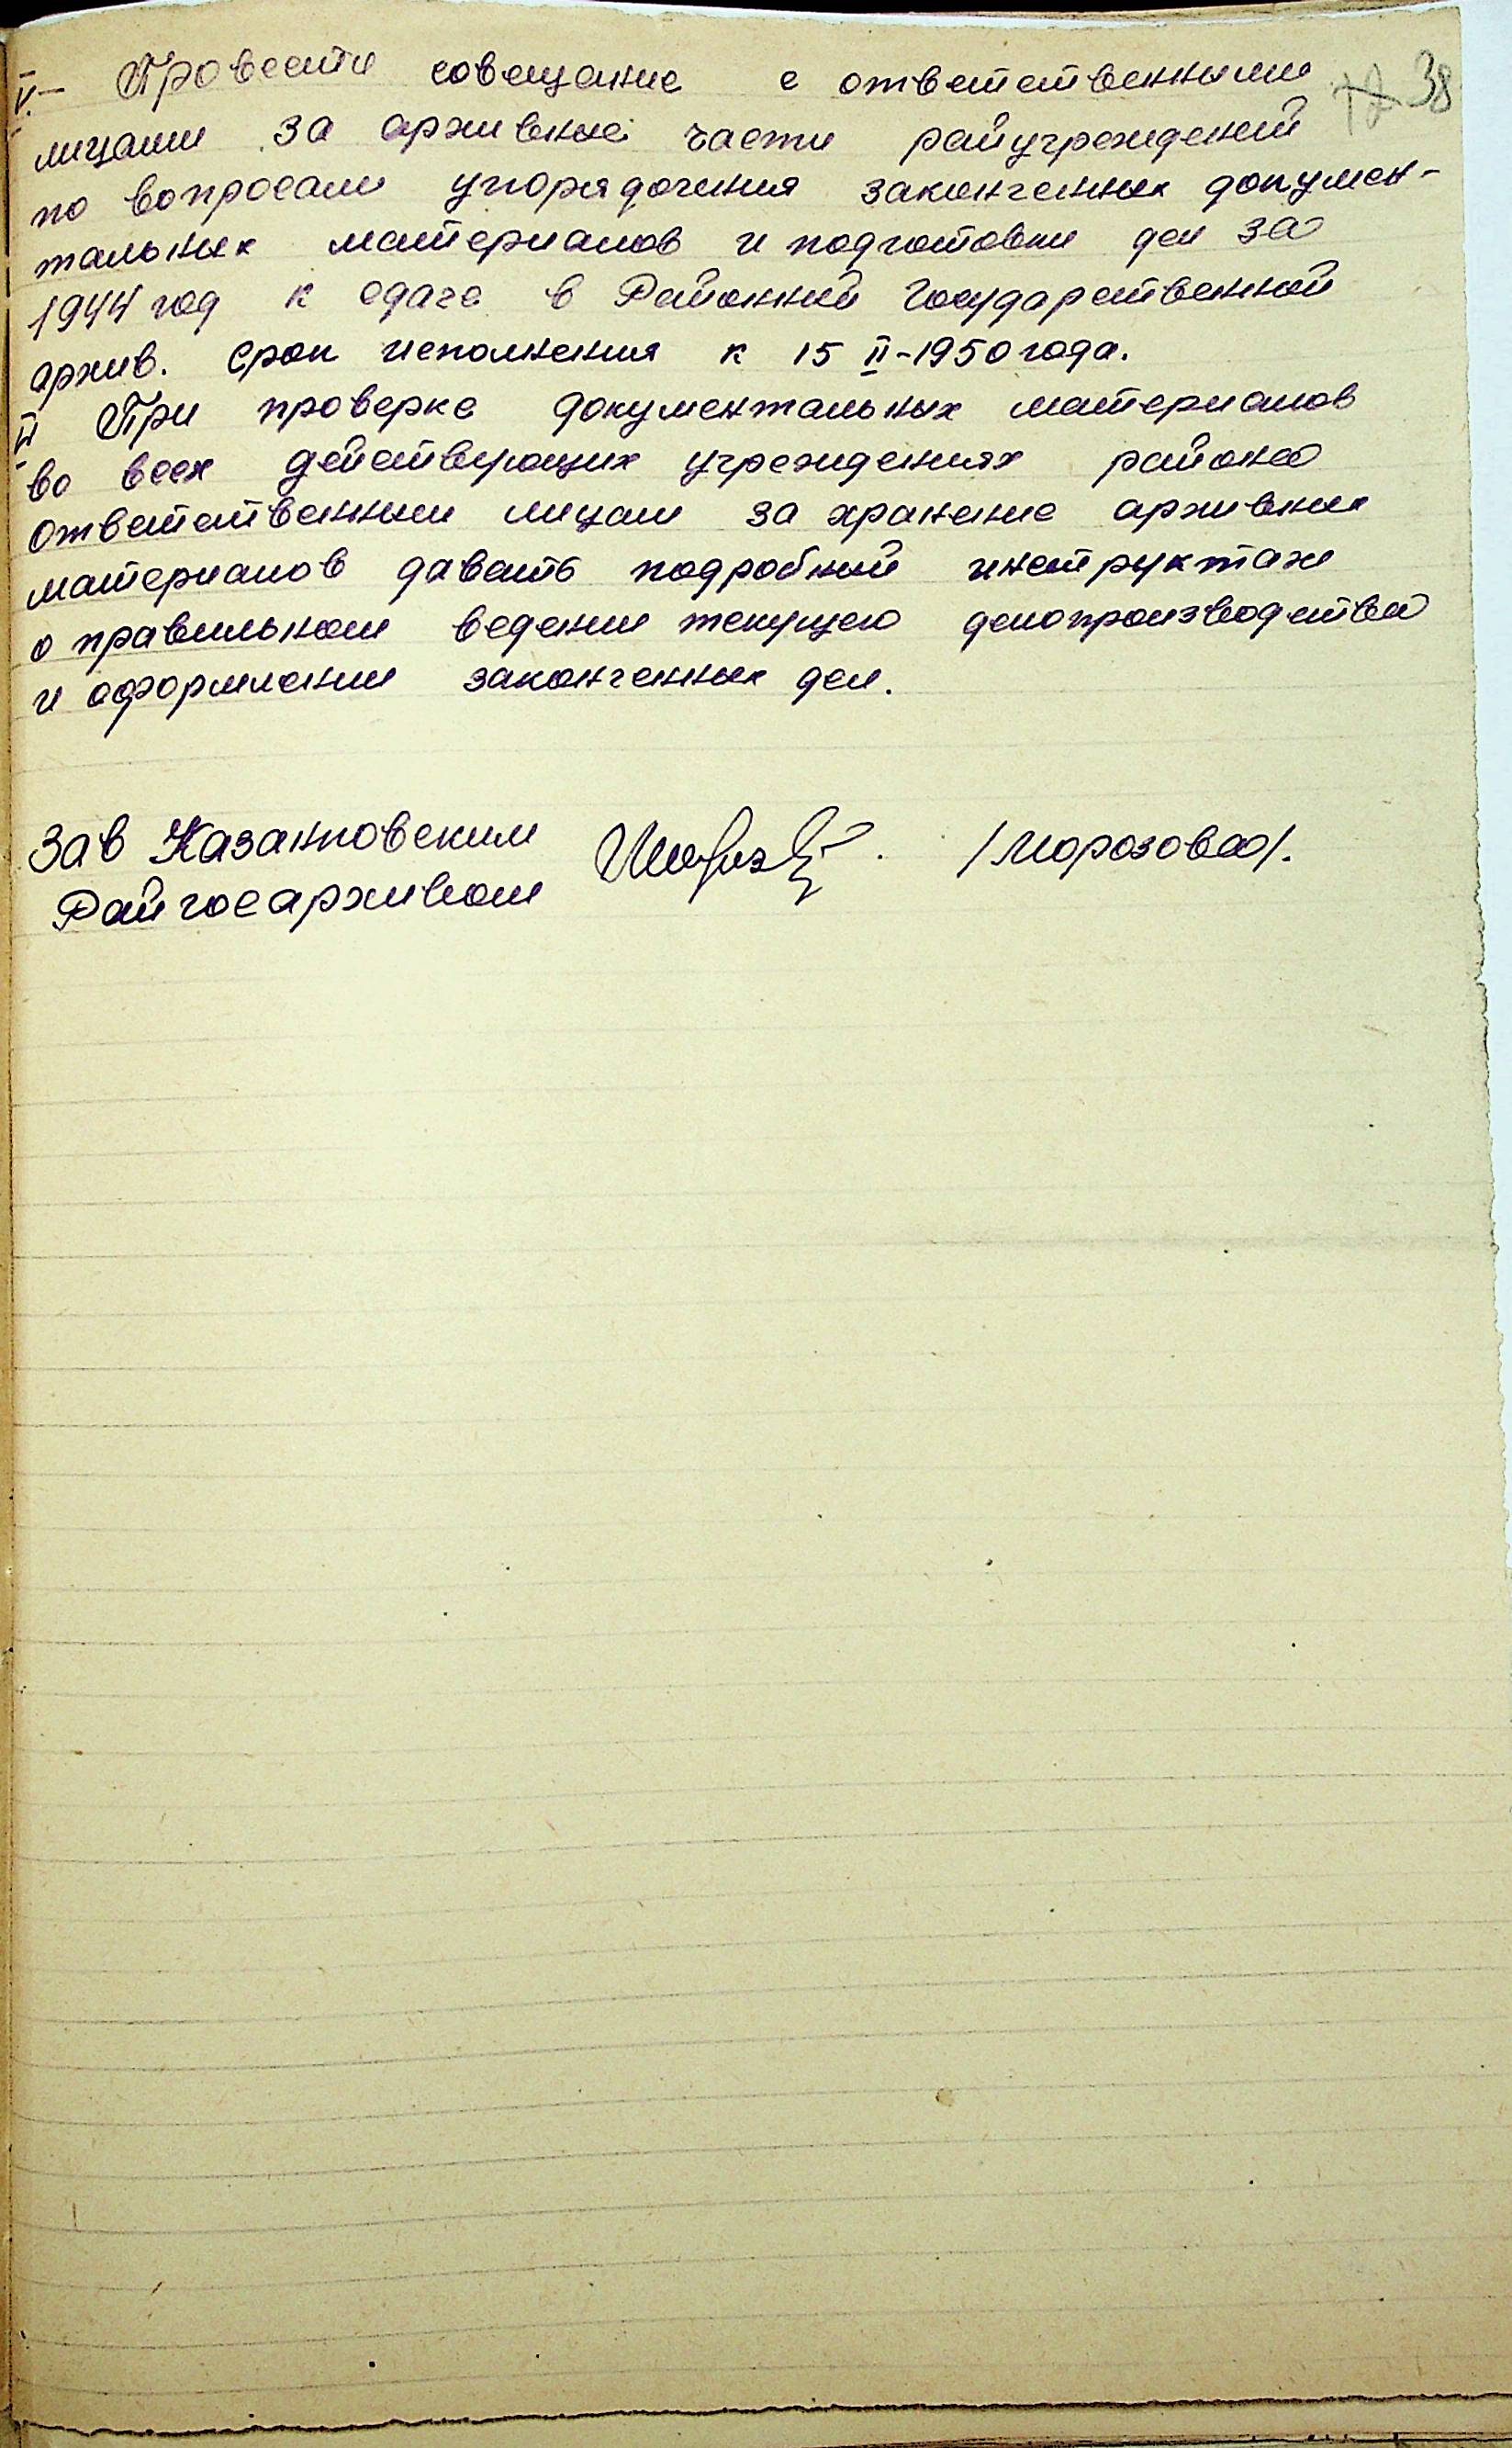 38
V.- Провести совещание с ответственными
лицами за архивные части райучреждений
по вопросам упорядочения законченных докумен-
тальных материалов и подготовки дел за
1944 год к сдаче в Районный Государственной
архив. Срок исполнения к 15 II-1950 года.
VI При проверке документальных материалов
во всех действующих учреждениях района
ответственным лицам за хранение архивных
материалов давать подробный инструктаж
о правильном ведении текущего делопроизводства
и оформлении законченных дел.
Зав Казанковским /Морозова/.
Райгосархивом